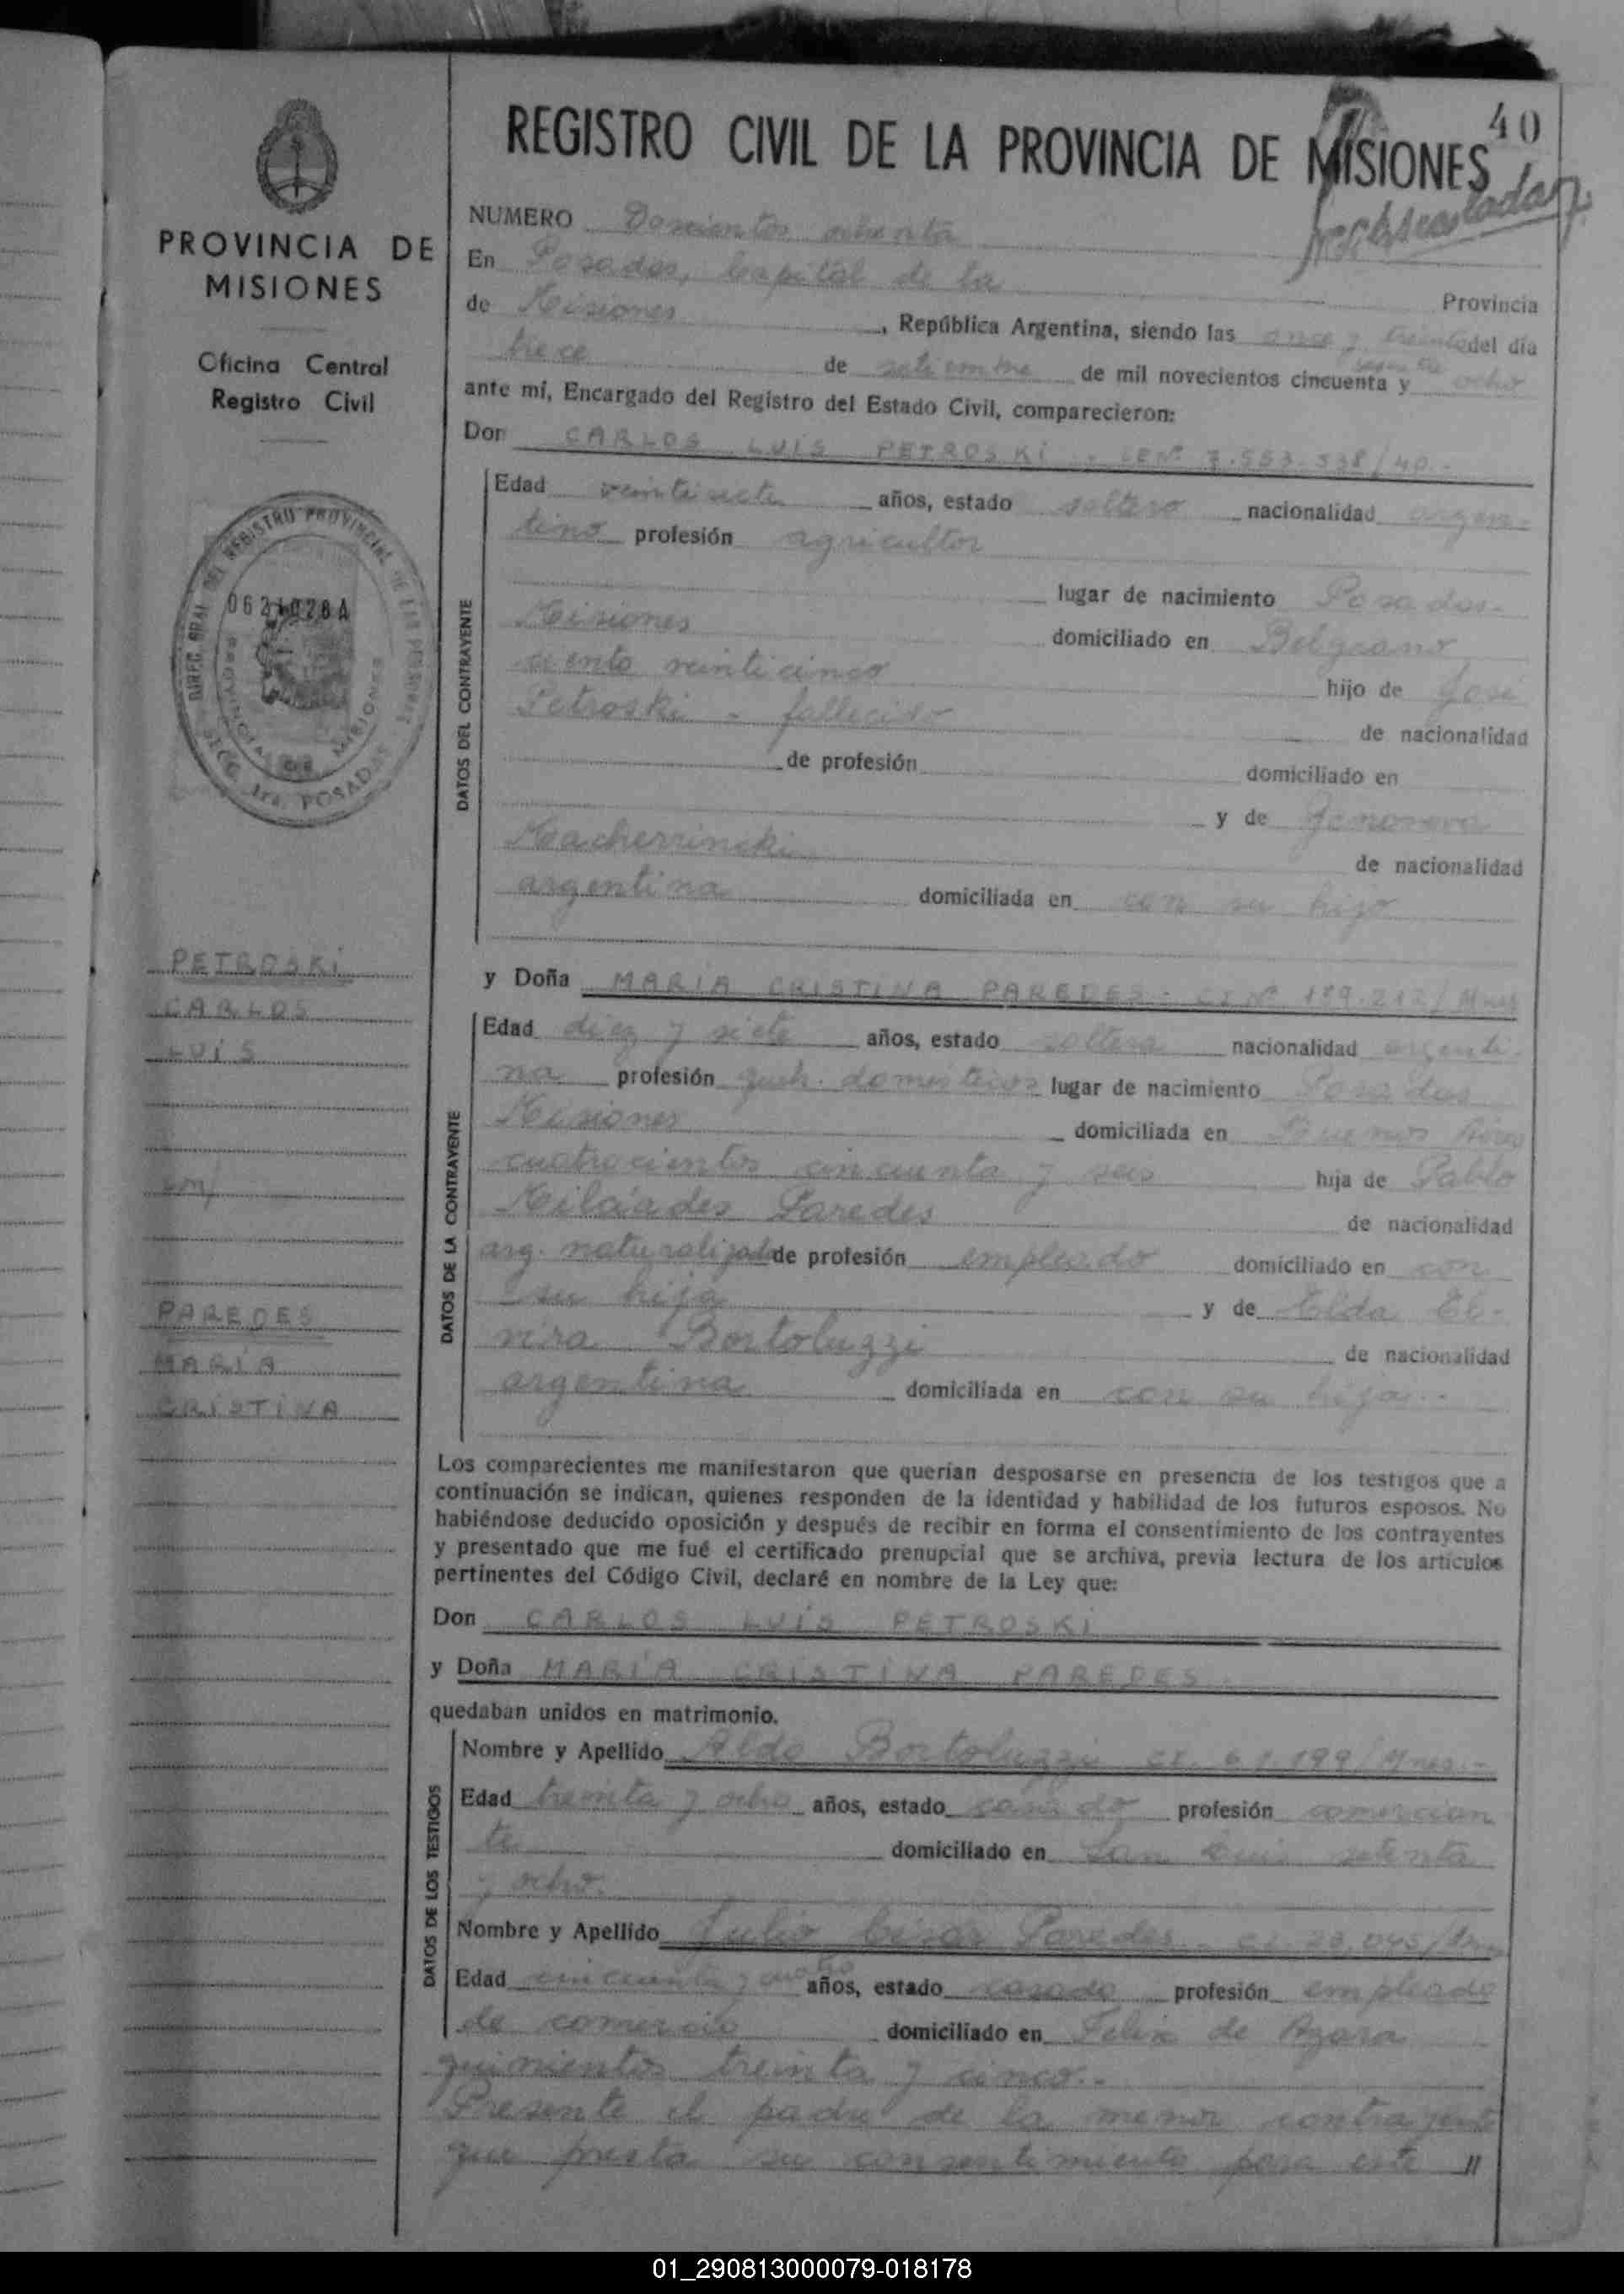 40
REGISTRO CIVIL DE LA PROVINCIA DE MISIONES
PROVINCIA DE
MISIONES
Oficina Central
Registro Civil
0621028A
PETROSKI
CARLOS
LUIS
con/
PAREDES
MARÍA
CRISTINA
NUMERO Doscientos ochenta
En Posadas, Capital de la Provincia
de Misiones, República Argentina, siendo las once y treinta del día
trece de setiembre de mil novecientos cincuenta y sesenta ocho
ante mí, Encargado del Registro del Estado Civil, comparecieron:
Don CARLOS LUIS PETROSKI - LE Nº 7.553.338/40.-
DATOS DEL CONTRAYENTE
Edad veintisiete años, estado soltero nacionalidad argen-
tino profesión agricultor
lugar de nacimiento Posadas-
Misiones domiciliado en Belgrano
ciento veinticinco hijo de José
Petroski - fallecido de nacionalidad
de profesión domiciliado en
y de Genoveva
de nacionalidad
argentina domiciliada en con su hijo
y Doña MARÍA CRISTINA PAREDES - CI Nº 189.212/Mnes
DATOS DE LA CONTRAYENTE
Edad diez y siete años, estado soltera nacionalidad argenti-
na profesión queh. domésticos lugar de nacimiento Posadas
Misiones domiciliada en Buenos Aires
cuatrocientos cincuenta y seis hija de Pablo
Paredes de nacionalidad
arg. naturalizado de profesión empleado domiciliado en con
su hija y de Elda El-
vira Bortoluzzi de nacionalidad
argentina domiciliada en con su hija.-
Los comparecientes me manifestaron que querían desposarse en presencia de los testigos que a
continuación se indican, quienes responden de la identidad y habilidad de los futuros esposos. No
habiéndose deducido oposición y después de recibir en forma el consentimiento de los contrayentes
y presentado que me fué el certificado prenupcial que se archiva, previa lectura de los artículos
pertinentes del Código Civil, declaré en nombre de la Ley que:
Don CARLOS LUIS PETROSKI
y Doña MARÍA CRISTINA PAREDES.
quedaban unidos en matrimonio.
DATOS DE LOS TESTIGOS
Nombre y Apellido Aldo Bortoluzzi CI. 61.199/Mnes.-
Edad treinta y ocho años, estado casado profesión comercian
te domiciliado en San Luis setenta
y ocho.
Nombre y Apellido Julio César Paredes - CI 23.045/Mnes
Edad cincuenta y cuatro años, estado casado profesión empleado
de comercio domiciliado en Felix de Azara
quinientos treinta y cinco.-
Presente el padre de la menor contrayente
que presta su consentimiento para este //
01_290813000079-018178